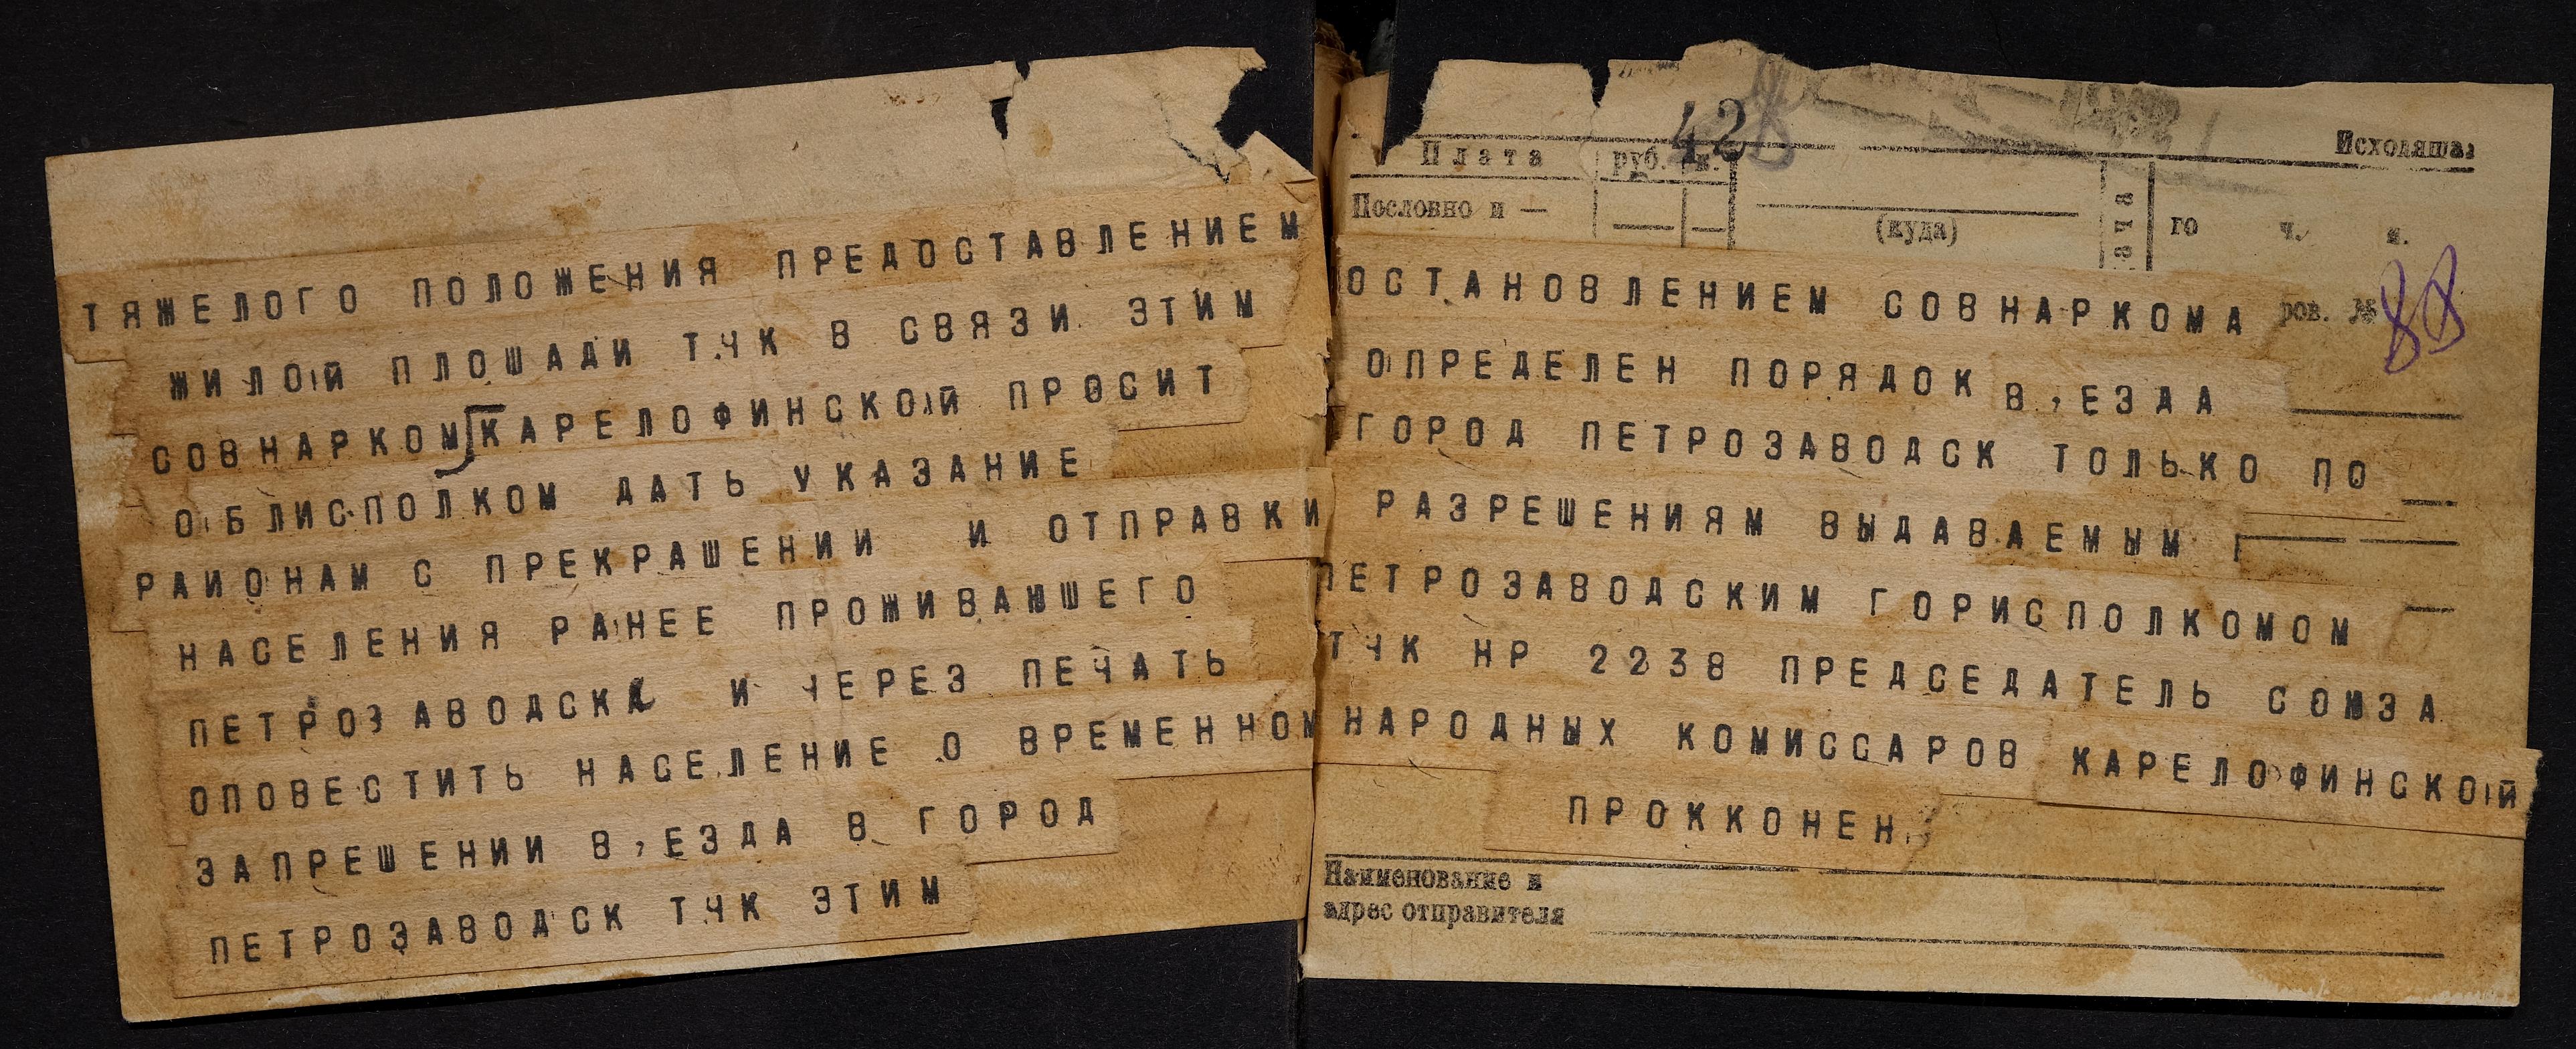 ТЯЖЕЛОГО ПОЛОЖЕНИЯ ПРЕДОСТАВЛЕНИЕМ
ЖИЛОЙ ПЛОШАДИ ТЧК В СВЯЗИ ЭТИМ
СОВНАРКОМ КАРЕЛОФИНСКОЙ ПРОСИТ
ОБЛИСПОЛКОМ ДАТЬ УКАЗАНИЕ
РАИОНАМ С ПРЕКРАШЕНИИ И ОТПРАВКИ
НАСЕЛЕНИЯ РАНЕЕ ПРОЖИВАЮШЕГО
ПЕТРОЗАВОДСКА И ЧЕРЕЗ ПЕЧАТЬ
ОПОВЕСТИТЬ НАСЕЛЕНИЕ О ВРЕМЕННОМ
ЗАПРЕШЕНИИ В,ЕЗДА В ГОРОД
ПЕТРОЗАВОДСК ТЧК ЭТИМ
42
Исходящая
Плата руб. к.
Пословно и —
(куда)
го ч. м.
ОСТАНОВЛЕНИЕМ СОВНАРКОМА
ров. № 88
ОПРЕДЕЛЕН ПОРЯДОК В,ЕЗДА
ГОРОД ПЕТРОЗАВОДСК ТОЛЬКО ПО
РАЗРЕШЕНИЯМ ВЫДАВАЕМЫМ
ПЕТРОЗАВОДСКИМ ГОРИСПОЛКОМОМ
ТЧК НР 2238 ПРЕДСЕДАТЕЛЬ СОЮЗА
НАРОДНЫХ КОМИССАРОВ КАРЕЛОФИНСКОЙ
ПРОККОНЕН
Наименование и
адрес отправителя